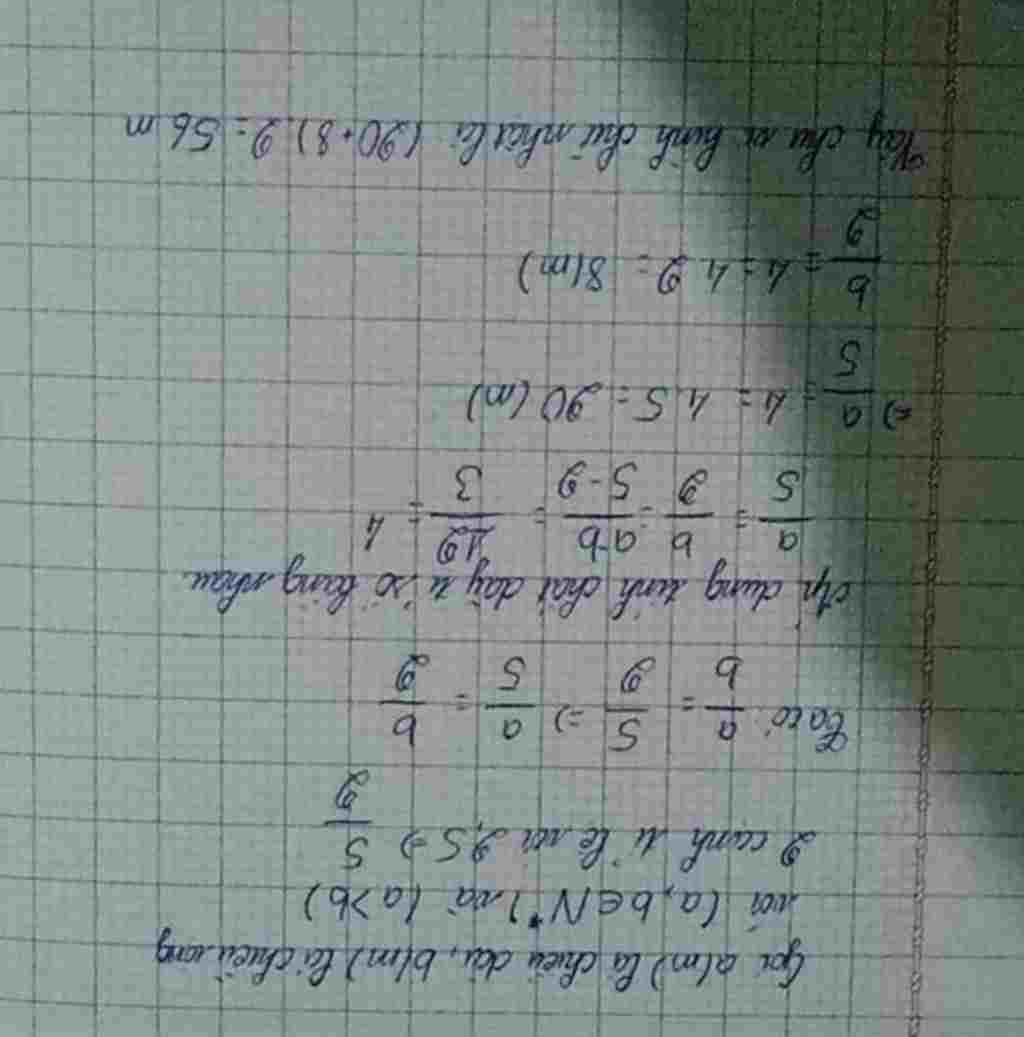 Gọi a(m) là chiều dài, b(m) là chiều rộng
với (a, b ∈ N*) và (a > b)
2 cạnh tỉ lệ với 2,5 => 5/2
Ta có: a/b = 5/2 => a/5 = b/2
Áp dụng tính chất dãy tỉ số bằng nhau
a/5 = b/2 = a-b/5-2 = 12/3 = 4
=) a/5 = 4 = 4.5 = 20 (m)
b/2 = 4 = 4.2 = 8(m)
Vậy chu vi hình chữ nhật là (20+8).2 = 56 m